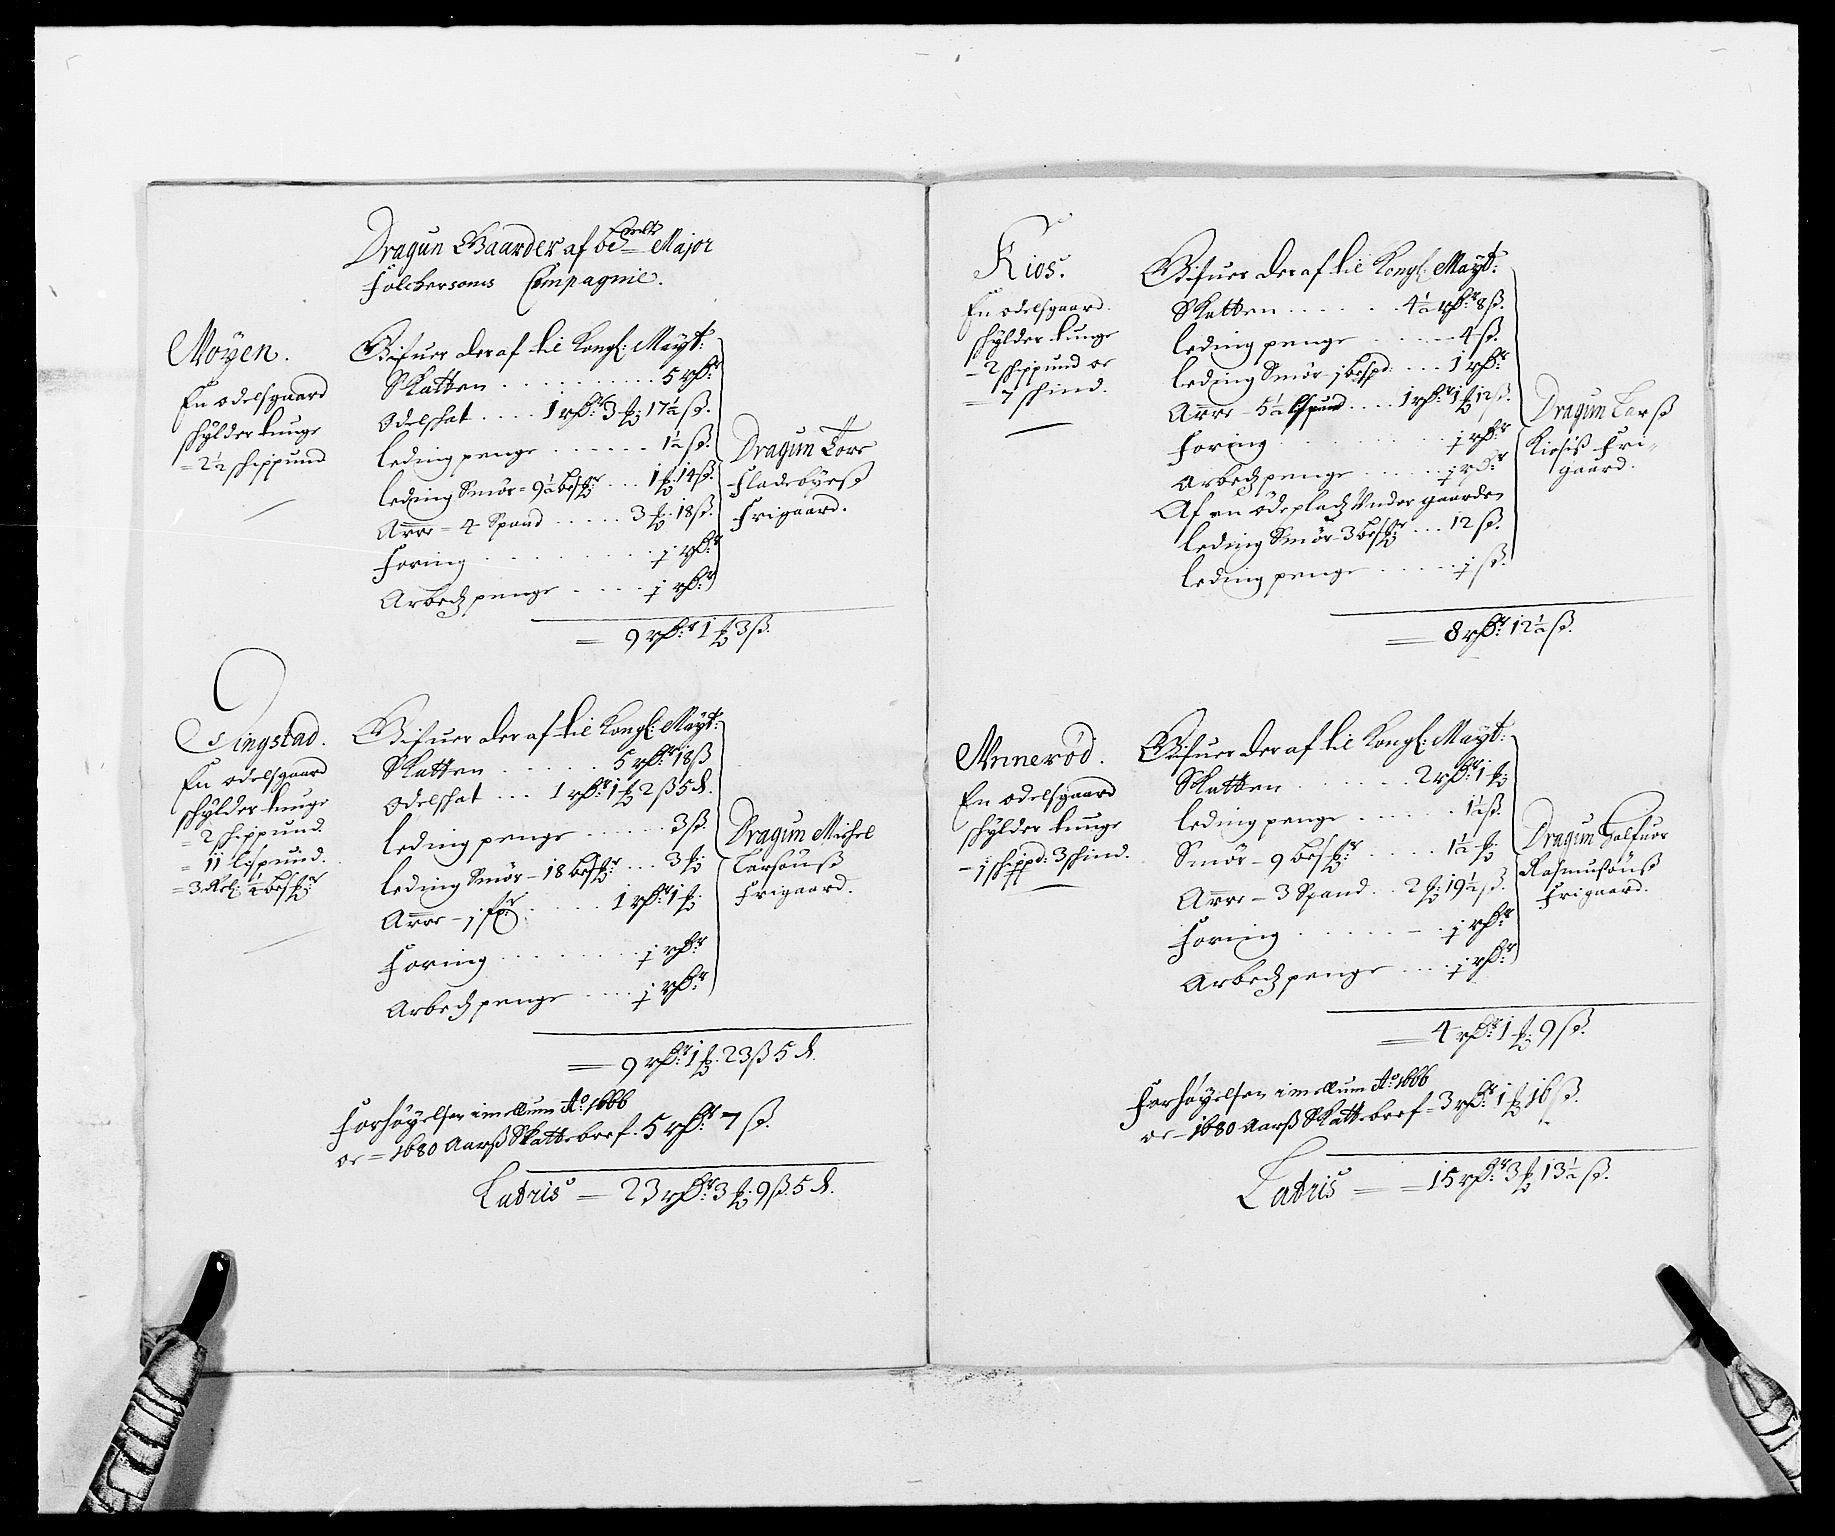 Dragun Gaarder af be.te Major
Folckersoms Compagnie.
Moyen.
En odelsgaard
schylder tunge
= 2½ schippund
Gifuer der af til Kongl: Mayt:
Skatten . . . . . . . . . . 5 rdr
Odelschat . . . . 1 rdr 3 ₰ 17½ ß.
leding penge . . . . . . 1½ ß.
leding Smör = 9½ bespr . . . 1 ₰ 14 ß.
Arre = 4 Spand . . . . . 3 ₰ 18 ß.
Foring . . . . . . . . . . j rdr
Arbedz penge . . . . . j rdr
Dragun Tore
Fladebyes
Frigaard.
= 9 rdr 1 ₰ 3 ß.
Tingstad.
En odelsgaard
schylder tunge
= 2 schippund.
= 11 lispund.
= 3 Rel: ½ bespr
Gifuer der af til Kongl: Mayt:
Skatten . . . . . . 5 rdr 18 ß
Odelschat . . . 1 rdr 1 ₰ 2 ß 5 d.
leding penge . . . . . . 3 ß.
leding Smör = 18 bespr . . . 3 ₰
Arre = j fr . . . . . 1 rdr 1 ₰
Foring . . . . . . . . j rdr
Arbedz penge . . . . j rdr
Dragun Michel
Larsøns
Frigaard.
= 9 rdr 1 ₰ 23 ß 5 d.
Forhøyelsen imellum Ao 1666
oc = 1680 Aars Skattebref. 5 rdr 7 ß.
Latris = 23 rdr 3 ₰ 9 ß 5 d.
Kios.
En odelsgaard.
schylder tunge
= 2 schippund oc
= 7 schind.
Gifuer der af til Kongl: Mayt:
Skatten . . . . . . 4½ rdr 8 ß.
leding penge . . . . . 4 ß.
leding Smör = j bespd: . . . 1 rdr
Arre = 5½ lispund . . . . 1 rdr 1 ₰ 12 ß.
Foring . . . . . . . . . . j rdr
Arbedz penge . . . . . j rdr
Af en ödeplads Under gaarden
leding Smör = 3 bespr . . . 12 ß.
leding penge . . . . . j ß.
Dragun Lars
Kiøsis Fri-
gaard.
= 8 rdr 12½ ß.
Annerød.
En odelsgaard
schylder tunge
= j schippd: 3 schind.
Gifuer der af til Kongl: Mayt:
Skatten . . . . . . . 2 rdr 1 ₰
leding penge . . . . . . 1½ ß.
Smör = 9 bespr . . . . . 1½ ₰
Arre = 3 Spand . . 2 ₰ 19½ ß.
Foring . . . . . . . . j rdr
Arbedz penge . . . . j rdr
Dragun Halfuor
Rasmusøns
Frigaard.
= 4 rdr 1 ₰ 9 ß.
Forhøyelsen imellum Ao 1666
oc = 1680 Aars Skattebref = 3 rdr 1 ₰ 16 ß.
Latris = = 15 rdr 3 ₰ 13½ ß.